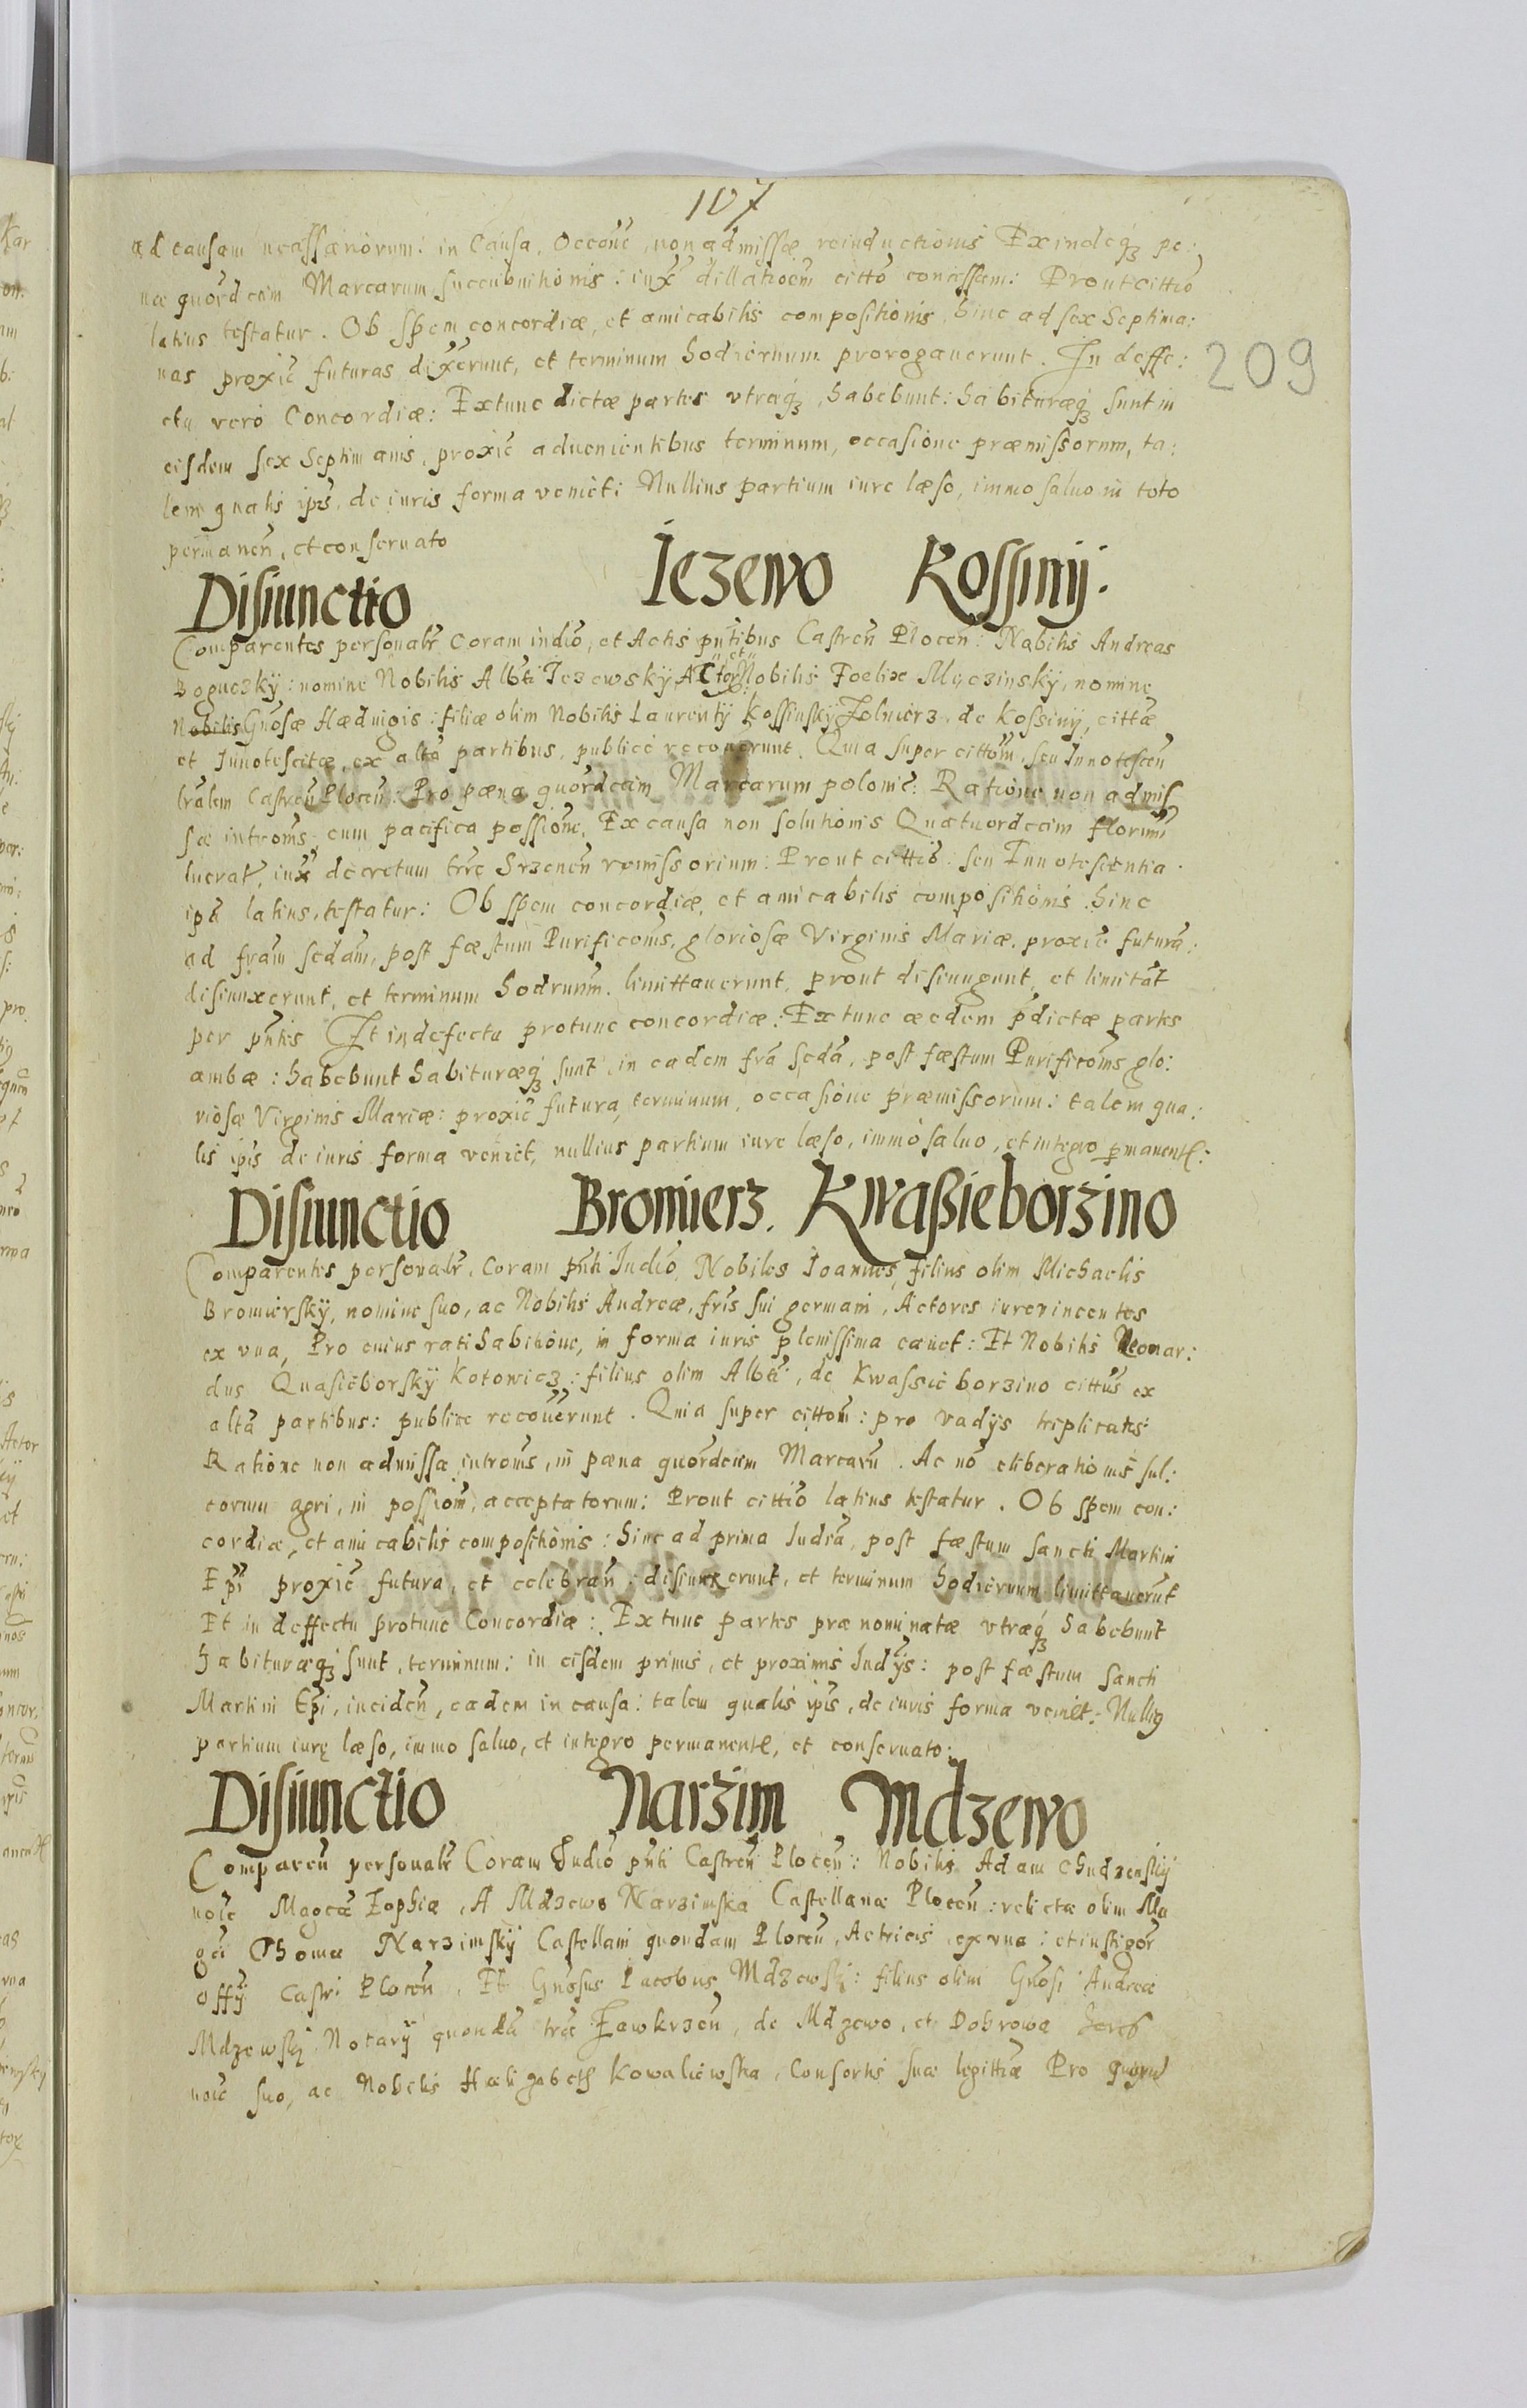 107
209
ad causam necessariorum: in Causa, Occōne, non admissæ reinductionis Exindeqȝ pe:
næ quōrdecim Marcarum succubuitionis: iux̃ dillatioēm cittō concessam: Prout cittio
latius testatur. Ob spem concordiæ, et amicabilis compositionis, hinc ad sex Septima:
nas proxiē futuras dixerunt, et terminum hodiernum prorogauerunt. In deffe:
ctu vero Concordiæ: Extunc dictæ partes vtræqȝ, habebunt: habituræqȝ sunt in
eisdem sex Septimanis, proxiē aduenientibus terminum, occasione præmissorum, ta:
lem qualis ip̄s, de iuris forma veniet: Nullius partium iure læso, immo saluo in toto
permanen̄, et conseruato
Disiunctio Iezewo Kossiny.
Comparentes personalr̄ coram iudiō, et Actis pn̄tibus Castren̄ Plocen̄: Nobilis Andreas
Boguczky: nomine Nobilis Alb̄ti Iezewsky, Actor et Nobilis Foelix Myczinsky, nomine
Nobilis Gn̄osæ Hæduigis: filiæ olim Nobilis Laurentÿ Kossinskÿ Zolnierz, de Kossinÿ, cittæ
et Innotescitæ, ex altā partibus, publicē recouerunt. Quia super cittōm, seu Innotescen̄
lrālem Castren̄ Plocen̄: Pro pœna quōrdecim Marcarum polonic̄: Ratione non admis
sæ introm̄s, cum pacifica possiōne, Ex causa non solutionis Quatuordecim florini
lucrat̄, iux̃ decretum tr̄re Srzenen̄ remissorium: Prout cittiō: seu Innotescentia
ip̄a latius, testatur: Ob spem concordiæ, et amicabilis compositionis hinc
ad fr̄am sc̄dam, post fæstum Purificom̄s, gloriosæ Virginis Mariæ, proxiē futura:
disiunxerunt, et terminum hodrnum̄. limittauerunt, prout disiungunt, et limitāt
per pn̄tes Et in defectu protunc concordiæ: Extunc eædem p̄dictæ partes
ambæ: habebunt habituræqȝ sunt, in eadem fr̄a sc̄da, post fæstum Purificom̄s glo:
riosæ Virginis Mariæ: proxiē futura, terminum, occasione præmissorum: talem qua:
lis ip̄is de iuris forma veniet, nullius partium iure læso, immo saluo, et integro permanente:
Disiunctio Bromierz. Kwaßieborzino
Comparentes personalr̄, Coram pn̄ti Iudiō, Nobiles Ioannes, filius olim Michaelis
Bromierskÿ, nomine suo, ac Nobilis Andreæ, fr̄is sui germani, Actores iurevincentes
ex vna, Pro cuius ratihabitiōne, in forma iuris plenissima cauet: Et Nobilis Leonar:
dus Quasiéborskÿ Kotowicz: filius olim Alb̄ti, de Kwassieborzino cittus ex
altā partibus: publice recouerunt. Quia super cittōm: pro vadÿs triplicatis
Ratione non admissæ introm̄s, in pæna quōrdecim Marcarū. Ac nō eliberationis sul:
corum agri, in possiōm, acceptatorum: Prout cittiō latius testatur. Ob spem con:
cordiæ, et amicabilis compositionis: hinc ad prima Iudiā, post fæstum sancti Martini
Ep̄i proxiē futura, et celebran̄: disiunxerunt, et terminum hodiernum limittauerūt
Et in deffectu protunc Concordiæ: Extunc partes prænominatæ vtræqȝ habebunt
Habituræqȝ sunt, terminum: in eisdem primis, et proximis Iudÿs: post fæstum sancti
Martini Ep̄i, inciden̄, eadem in causa: talem qualis ip̄is, de iuris forma veniet: Nulliꝯ
partium iurę læso, immo saluo, et integro permanente, et conseruato:
Disiunctio Narzim Mdzewo
Comparen̄ personalr̄ Coram Iudiō pn̄ti Castren̄ Plocen̄: Nobilis Adam Chudzenskÿ
noīe Maḡcæ Zophiæ, A Mdzewo Narzimska Castellanæ Plocen̄: relictæ olim Ma
gci Thomæ Narzimskÿ Castellani quondam Plocen̄, Actricis, ex vna: et instigōr
offÿ Castri Plocen̄, Et Gn̄osus Iacobus Mdzewskÿ: filius olim Gn̄osi Andreæ
Mdzewskÿ Notarÿ quondā tr̄re Zawkrzen̄, de Mdzewo, et Dobrowa heres
noīe suo, ac Nobilis Hæligabeth Kowaliewska, Consortis suæ legittīæ Pro quorū